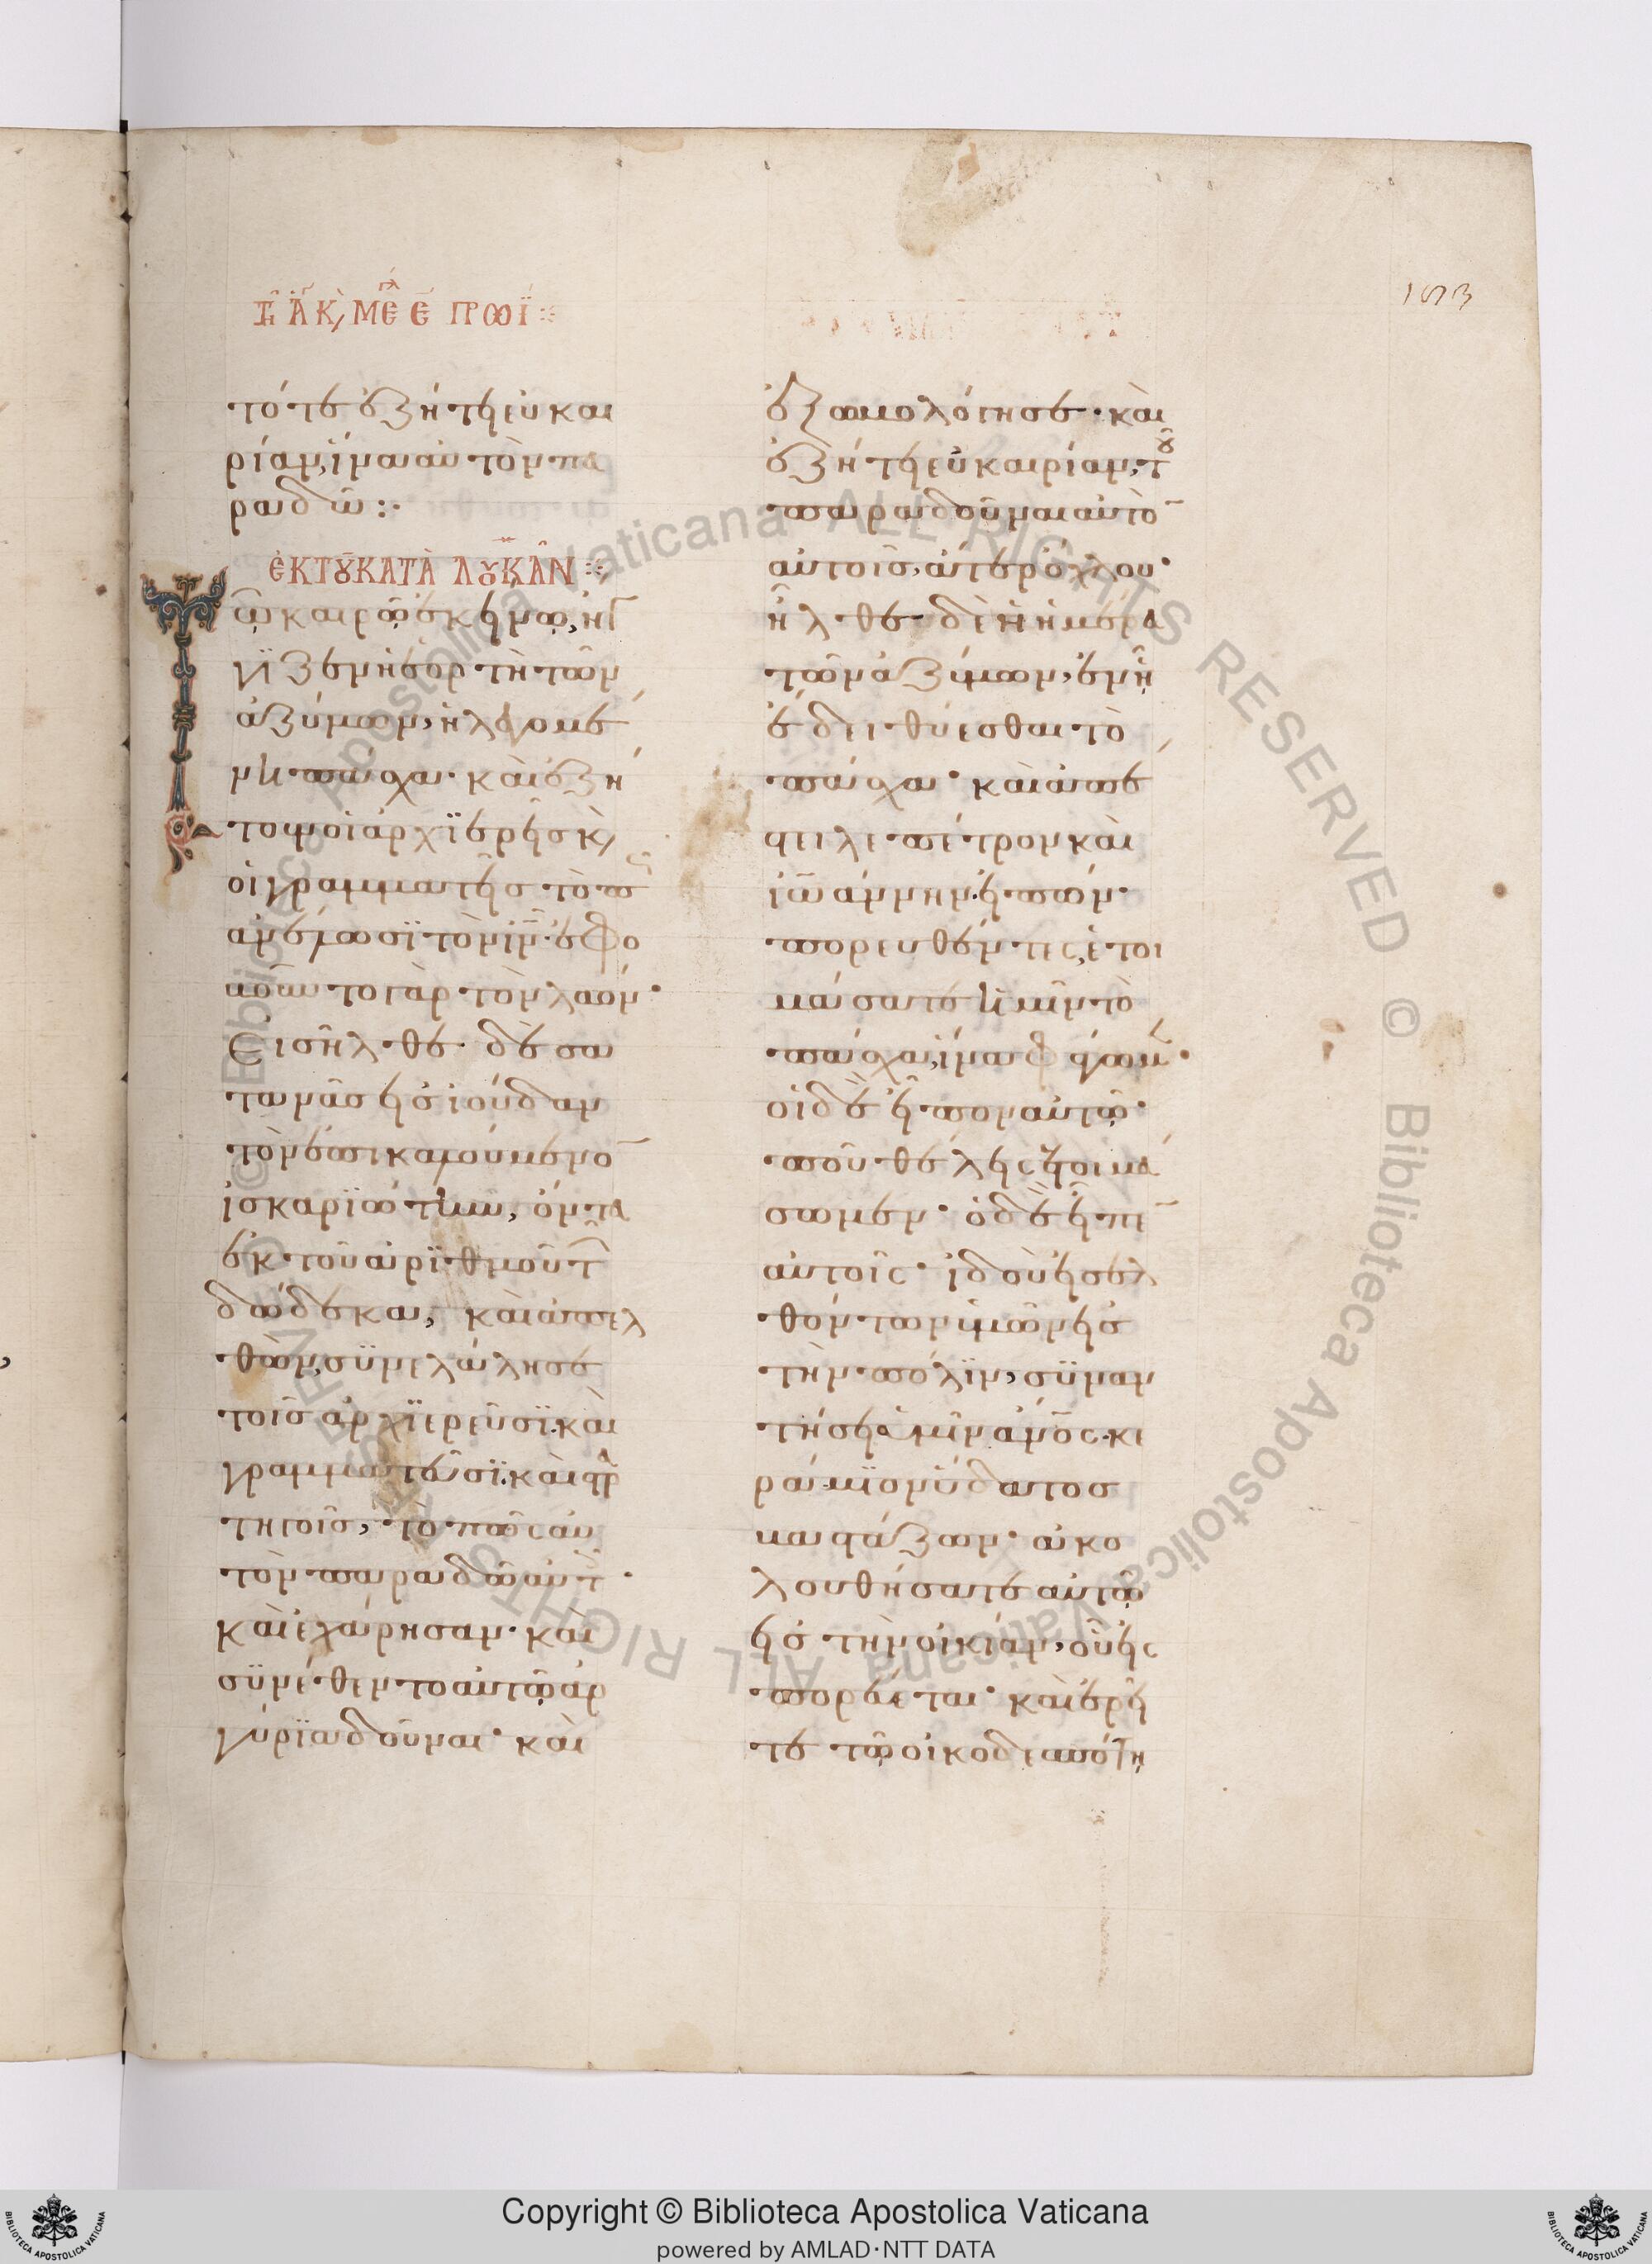 τῆ ἁγ κ, μεγ ε̄ πρωϊ
τότε ἐζήτει εὐκαι
ρίαν, ἵνα αὐτὸν πα
ραδῶ :·
ἐκ τοῦ κατὰ λουκᾶν
Τῶ καιρῶ ἐκείνω, ἤγ
γιζεν ἡ ἑορτὴ τῶν
ἀζύμων, ἡ λεγομέ
νη πάσχα· καὶ ἐζή
τουν οἱ ἀρχϊερεῖς κ,
οἱ γραμματεῖς τὸ π
ἀνέλωσϊ τὸν ἰν· ἐφο
βοῦντο γὰρ τὸν λαόν·
Εἰσῆλθε δὲ σα
τανᾶς εἰς ἰούδαν
τὸν ἐπικαλούμενο
ἰσκαρϊώτην, ὄντα
ἐκ τοῦ ἀρϊθμοῦ τ
δώδεκα, καὶ ἀπελ
θὼν, συνελάλησε
τοῖς ἀρχϊερεῦσϊ· καὶ
γραμματεῦσϊ· καὶ στρ
τηγοῖς, τὸ πῶς αὐ
τὸν παραδῶ αὐτ·
καὶ ἐχάρησαν· καὶ
συνέθεντο αὐτῶ ἀρ
γύρϊα δοῦναι· καὶ
ἐξωμολόγησε· καὶ
ἐζήτει εὐκαιρίαν, τοῦ
παραδοῦναι αὐτὸ
αὐτοῖς, ἄτερ ὄχλου·
ἦλθε δὲ ἡ ἡμέρα
τῶν ἀζύμων, ἐν ἧ
ἔδει θύεσθαι τὸ
πάσχα· καὶ ἀπέ
στειλε πέτρον καὶ
ἰωάννην, εἰπών·
πορευθέντες, ἑτοι
μάσατε ἡμῖν τὸ
πάσχα, ἵνα φάγωμ·
οἱ δὲ εἶπον αὐτῶ·
ποῦ θέλεις ἑτοιμά
σωμεν· ὁ δὲ εἶπε
αὐτοῖς· ἰδοὺ εἰσελ
θόντων ὑμῶν εἰς
τὴν πόλϊν, συναν
τήσει ὑμῖν ἀνος· κε
ράμϊον ὕδατος
βαστάζων· ἀκο
λουθήσατε αὐτῶ
εἰς τὴν οἰκίαν, οὗ εἰς
πορεύεται· καὶ ἐρεῖ
τε τῶ οἰκοδεσπότη
Copyright © Biblioteca Apostolica Vaticana
powered by AMLAD·NTT DATA